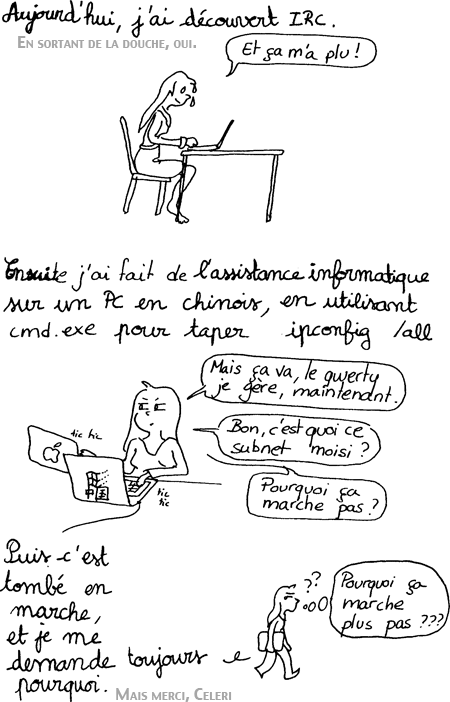 Aujourd'hui, j'ai découvert IRC.
EN SORTANT DE LA DOUCHE, OUI.
Et ça m'a plu !
Ensuite j'ai fait de l'assistance informatique
sur un PC en chinois, en utilisant
cmd.exe pour taper ipconfig /all
Mais ça va, le qwerty
je gère, maintenant.
tic tic
Bon, c'est quoi ce
subnet moisi ?
中国
tic
tic
Pourquoi ça
marche pas ?
Puis c'est
tombé en
marche,
et je me
demande toujours
pourquoi.
??
Pourquoi ça
marche
plus pas ???
MAIS MERCI, CELERI